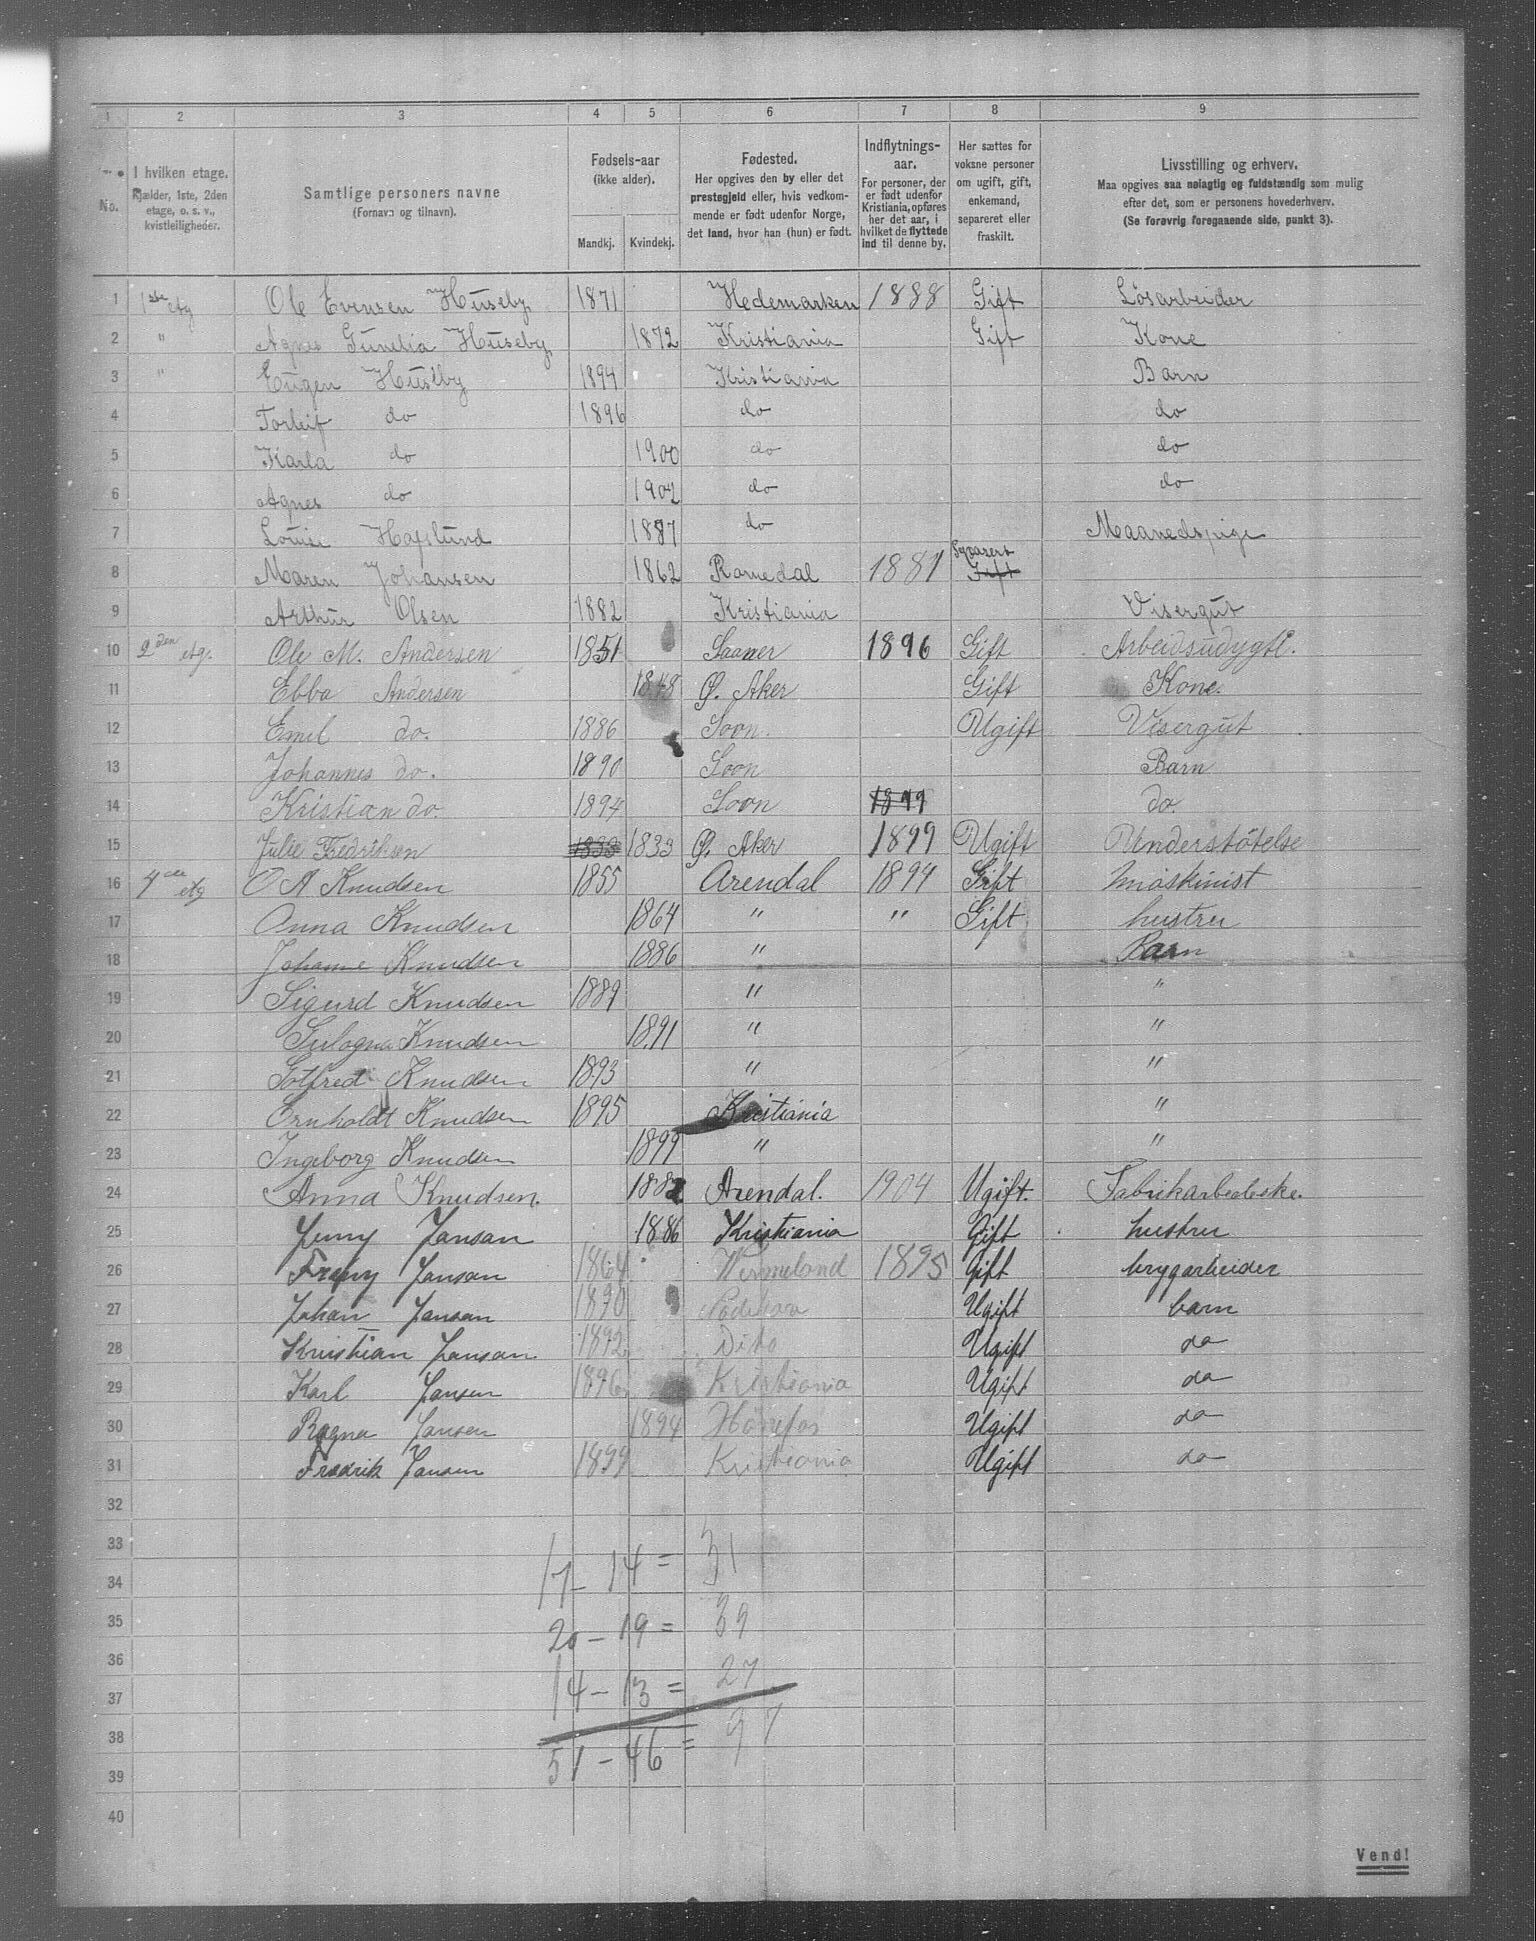 1 2 3 4 5 6 7 8 9
No.
I hvilken etage.
Kjælder, 1ste, 2den etage, o. s. v., kvistleiligheder.
Samtlige personers navne
(Fornavn og tilnavn).
Fødsels-aar
(ikke alder).
Mandkj. Kvindekj.
Fødested.
Her opgives den by eller det prestegjeld eller, hvis vedkommende er født udenfor Norge, det land, hvor han (hun) er født.
Indflytnings-aar.
For personer, der er født udenfor Kristiania, opføres her det aar, i hvilket de flyttede ind til denne by.
Her sættes for voksne personer om ugift, gift, enkemand, separeret eller fraskilt.
Livsstilling og erhverv.
Maa opgives saa nøiagtig og fuldstændig som mulig efter det, som er personens hovederhverv.
(Se forøvrig foregaaende side, punkt 3).
1 1ste etg Ole Evensen Huseby 1871 Hedemarken 1888 Gift Løsarbeider
2 " Agnes Gunelia Huseby 1872 Kristiania Gift Kone
3 " Eugen Huseby 1894 Kristiania Barn
4 Torleif do 1896 do do
5 Karla do 1900 do do
6 Agnes do 1902 do do
7 Louise Hafslund 1887 do Maanedspige
8 Maren Johansen 1862 Romedal 1881 Gift
9 Arthur Olsen 1882 Kristiania Visergut
10 2den etg. Ole M. Andersen 1851 Saaner 1896 Gift Arbeidsudygtl.
11 Ebba Andersen 1848 Ø. Aker Gift Kone.
12 Emil do. 1886 Soon. Ugift Visergut
13 Johannes do. 1890 Soon Barn
14 Kristian do. 1894 Soon 1899 do.
15 Julie Fredriksen 1833 1833 Ø. Aker 1899 Ugift Understøtelse
16 etg O A Knudsen 1855 Arendal 1894 Gift maskinist
17 Anna Knudsen 1864 " " Gift hustru
18 Johanne Knudsen 1886 " Barn
19 Sigurd Knudsen 1889 " "
20 Knudsen 1891 " "
21 Gotfred Knudsen 1893 " "
22 Ernholdt Knudsen 1895 Kristiania "
23 Ingeborg Knudsen 1899 " "
24 Anna Knudsen. 1882 Arendal. 1904 Ugift. Fabrikarbeideske.
25 Jenny Jansan 1886 Kristiania Gift hustru
26 Jansan 1864 Wermeland 1895 Gift brygarbeider
27 Johan Jansan 1890 Ugift barn
28 Kristian Jansan 1892 Dito Ugift do
29 Karl Jansen 1896 Kristiania Ugift do
30 Ragna Jansen 1894 Hønefos Ugift do
31 Fredrik Jansen 1899 Kristiania Ugift do
32
33
17 - 14 = 31
34
35
20 - 19 = 39
36
14 - 13 = 27
37
38
51 - 46 = 97
39
40
Vend!